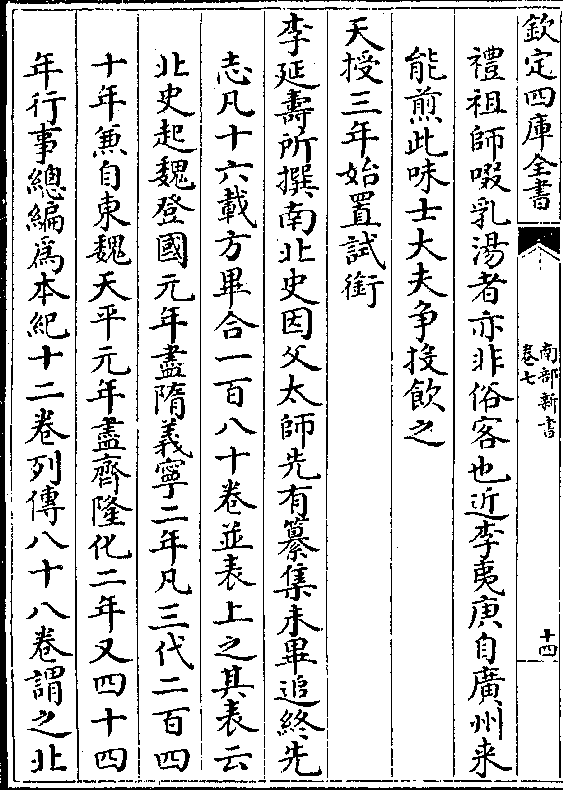 欽定四庫全書
南部新書
卷七
十四
禮祖師啜乳湯者亦非俗客也近李夷庚自廣州来
能煎此味士大夫争投飲之
天授三年始置試銜
李延壽所撰南北史因父太師先有纂集未畢追終先
志凡十六載方畢合一百八十卷並表上之其表云
北史起魏登國元年盡隋義寧二年凡三代二百四
十年兼自東魏天平元年盡齊隆化二年又四十四
年行事總編爲本紀十二卷列傳八十八卷謂之北